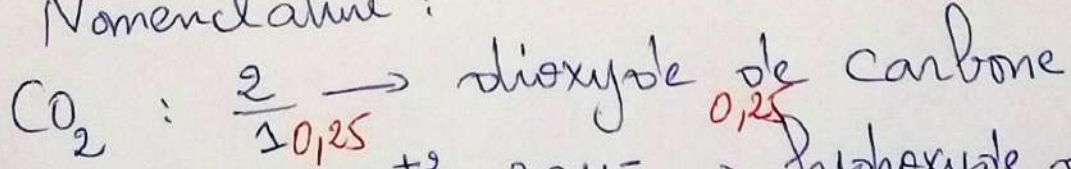 Nomenclature :
CO₂ : 2/1 0,25 → dioxyde de carbone 0,25